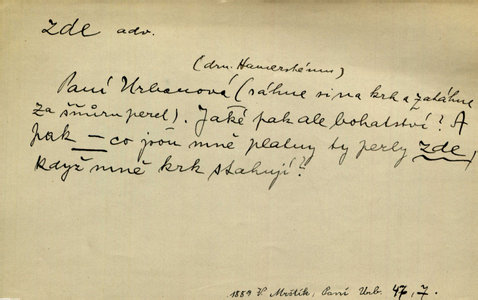 zde adv.
(dru. Hamerskému)
Paní Urbanová (sáhne si na krk a zatáhne
za šňůru perel). Jaké pak ale bohatství? A
pak — co jsou mně platny ty perly zde,
když mně krk stahují?
1889 V. Mrštík, Paní Urb. 46, 7.